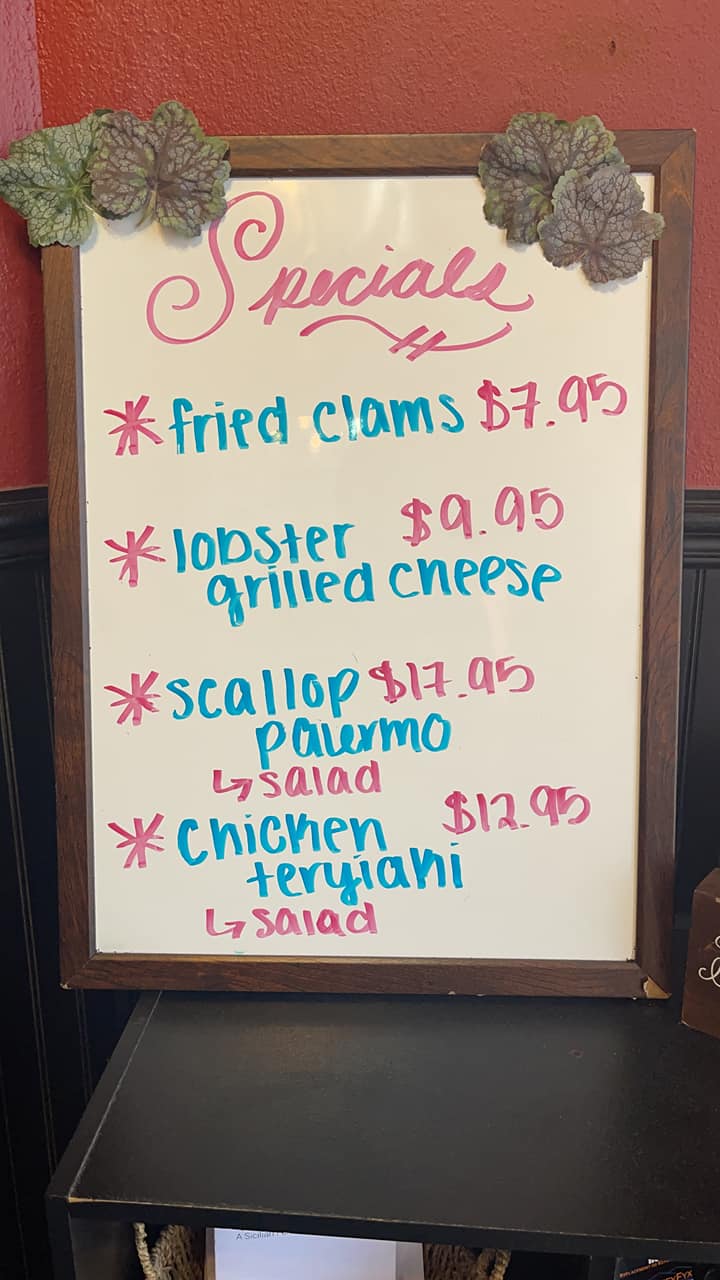 Specials
* fried clams $7.95
* lobster $9.95
grilled cheese
* scallop $17.95
palermo
↳ salad
* Chicken $12.95
teryiaki
↳ salad
A Sicilian